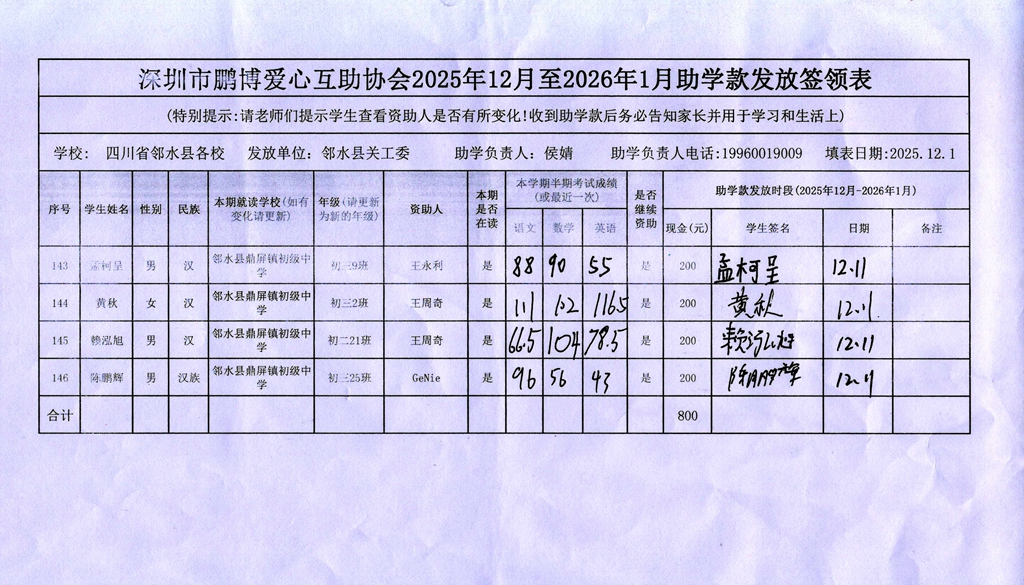 深圳市鹏博爱心互助协会2025年12月至2026年1月助学款发放签领表
(特别提示:请老师们提示学生查看资助人是否有所变化!收到助学款后务必告知家长并用于学习和生活上)
学校: 四川省邻水县各校 发放单位: 邻水县关工委 助学负责人: 侯婧 助学负责人电话:19960019009 填表日期:2025.12.1
序号 学生姓名 性别 民族 本期就读学校(如有变化请更新) 年级(请更新为新的年级) 资助人 本期是否在读 本学期半期考试成绩(或最近一次) 是否继续资助 助学款发放时段(2025年12月-2026年1月)
语文 数学 英语 现金(元) 学生签名 日期 备注
143 孟柯呈 男 汉 邻水县鼎屏镇初级中学 初三9班 王永利 是 88 90 55 是 200 孟柯呈 12.11
144 黄秋 女 汉 邻水县鼎屏镇初级中学 初三2班 王周奇 是 111 102 116.5 是 200 黄秋 12.11
145 赖泓旭 男 汉 邻水县鼎屏镇初级中学 初二21班 王周奇 是 66.5 104 78.5 是 200 赖泓旭 12.11
146 陈鹏辉 男 汉族 邻水县鼎屏镇初级中学 初三25班 GeNie 是 96 56 43 是 200 陈鹏辉 12.11
合计 800